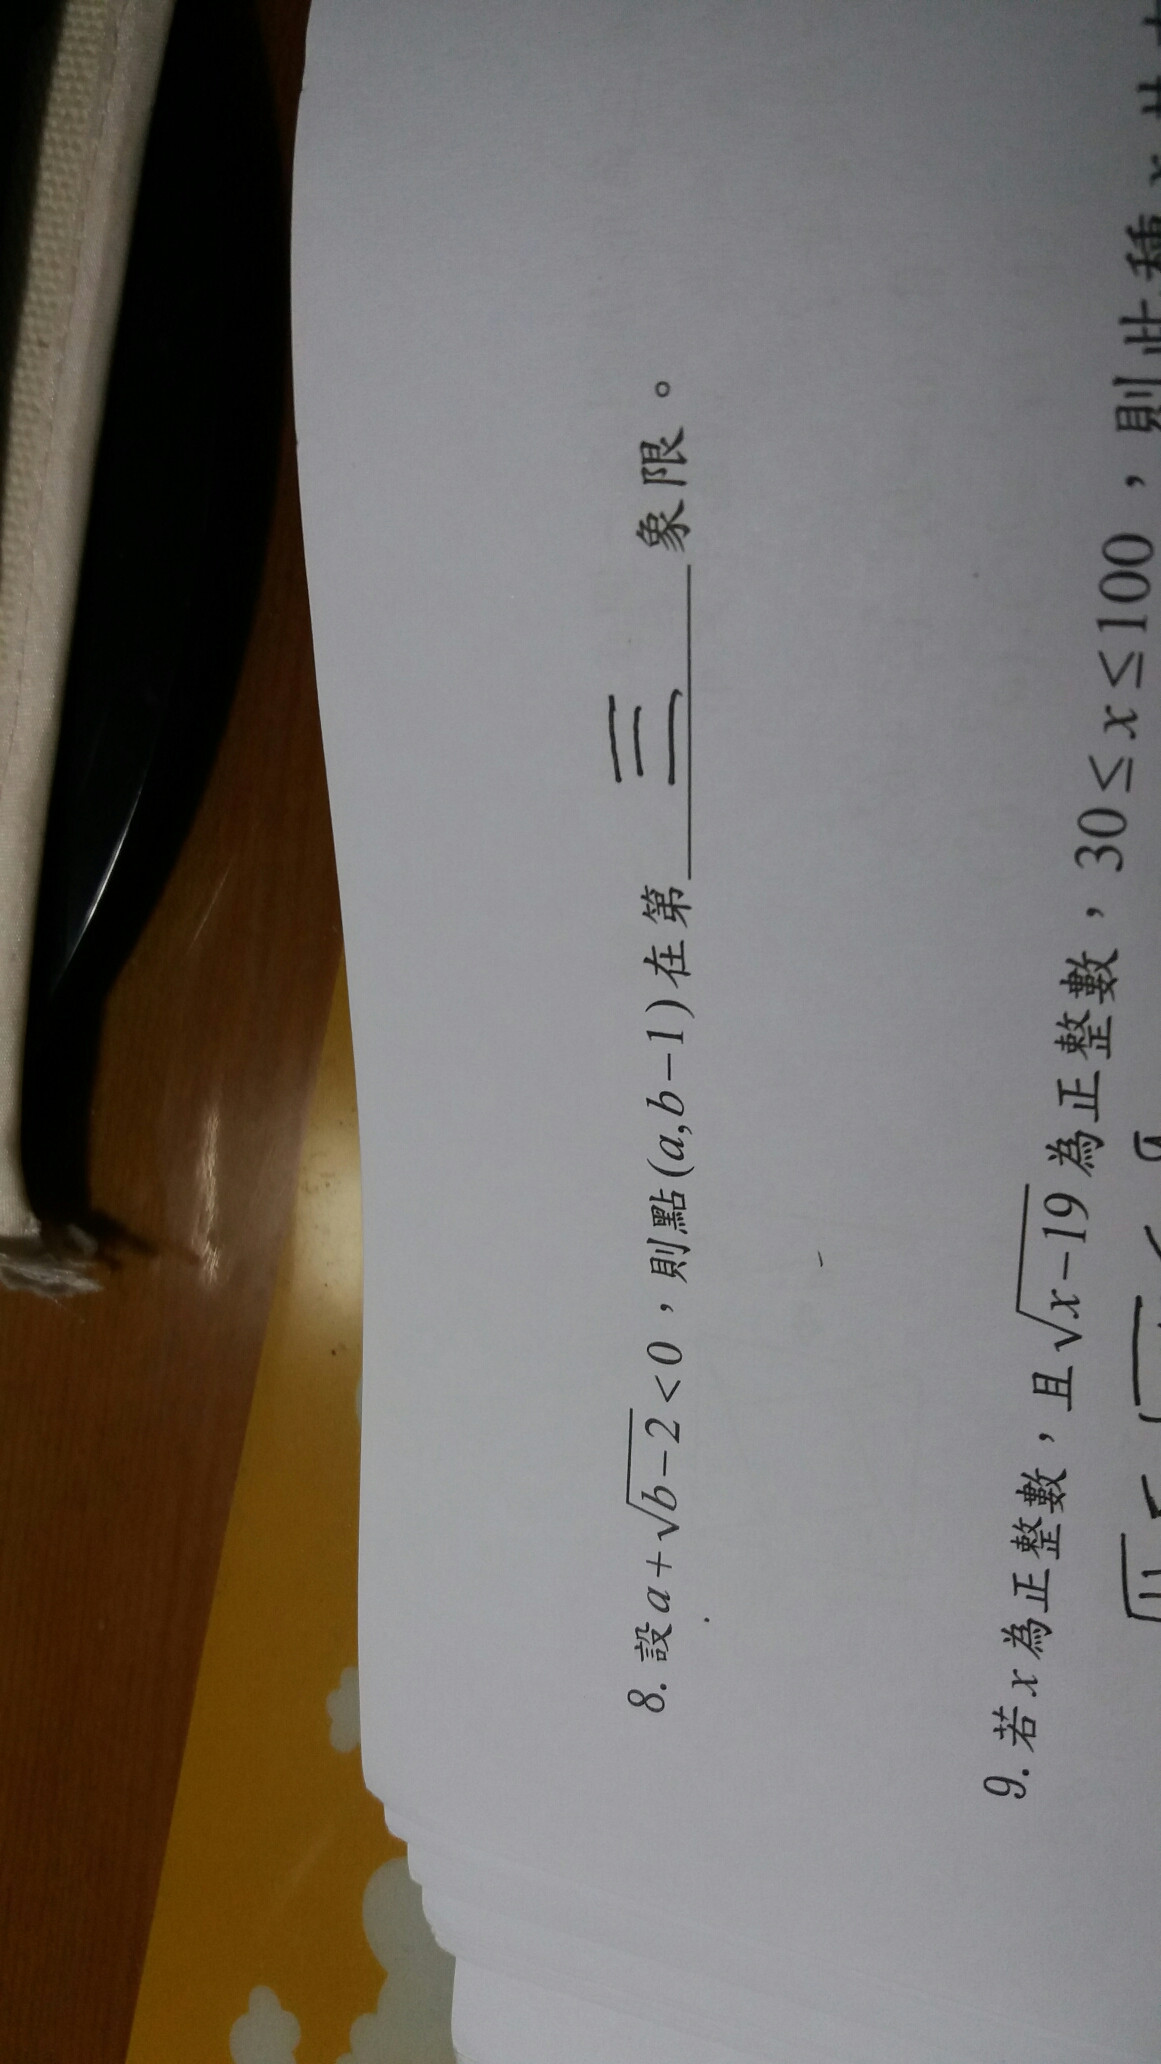 8. 設 a+√b-2<0,則點(a,b-1)在第三象限。
9. 若 x 為正整數,且√x-19 為正整數,30≤x≤100,則此種 x